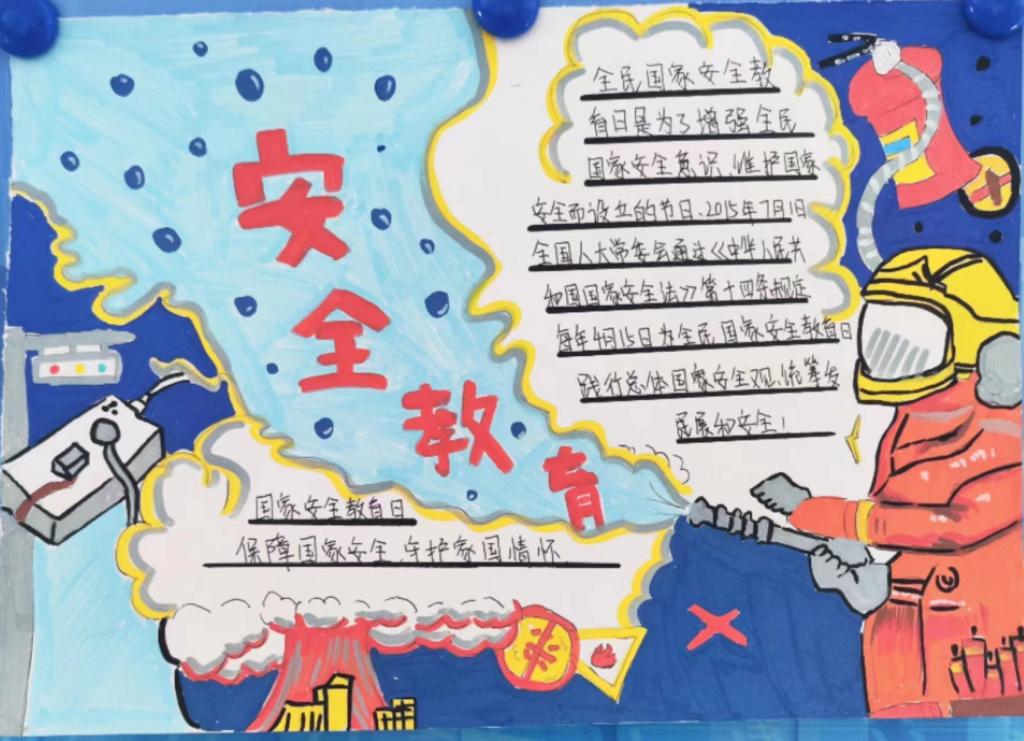 安全教育
全民国家安全教
育日是为了增强全民
国家安全意识、维护国家
安全而设立的节日、2015年7月1日
全国人大常委会通过《中华人民共
和国国家安全法》第十四条规定
每年4月15日为全民国家安全教育日
践行总体国家安全观,统筹发
展和安全!
国家安全教育日
保障国家安全、守护家国情怀